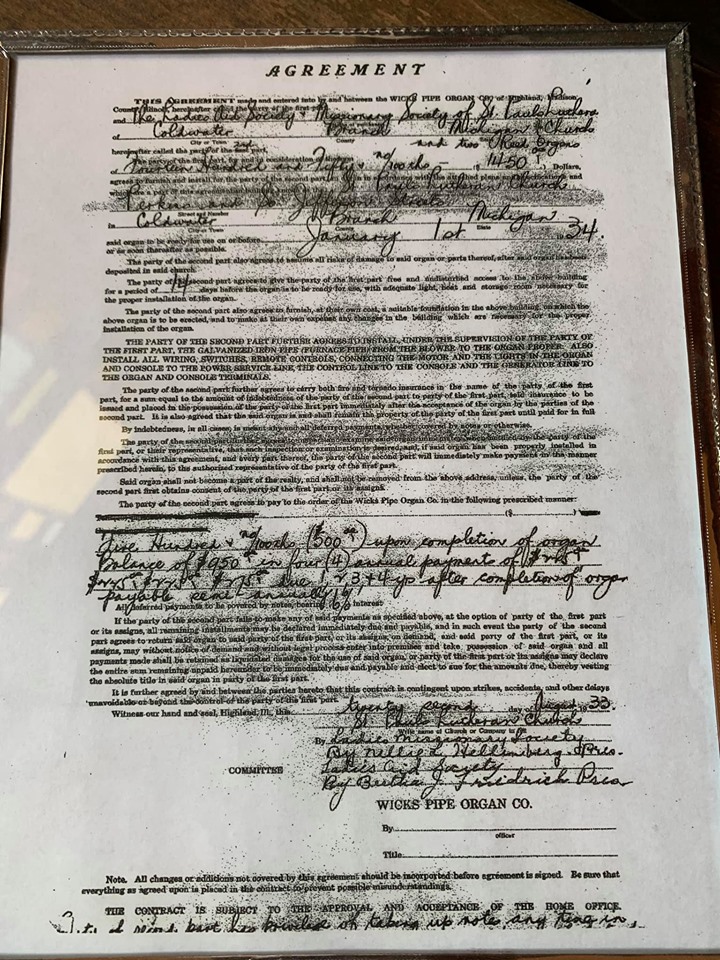 AGREEMENT
THIS AGREEMENT made and entered into by and between the WICKS PIPE ORGAN CO. of Highland, Madison
County, Illinois, hereinafter called the party of the first part
and The Ladies Aid Society & Missionary Society of St. Pauls Lutheran
of Coldwater Branch Michigan Church
City or Town County State
hereinafter called the party of the second part. and two Reed Organs
The party of the first part, for and in consideration of the sum
of Fourteen Hundred and Fifty & no/100ths - $1450 Dollars,
agrees to furnish and install, for the party of the second part in accordance with the attached plans and specifications and
which are a part of this agreement St. Pauls Lutheran Church
Perkins and So. Jefferson Streets
Street and Number
in Coldwater Branch Michigan
City or Town County State
said organ to be ready for use on or before January 1st 1934.
or as soon thereafter as possible.
The party of the second part also agrees to assume all risks of damage to said organ or parts thereof, after said organ has been
deposited in said church.
The party of the second part agrees to give the party of the first part free and undisturbed access to the above building
for a period of 14 days before the organ is to be ready for use, with adequate light, heat and storage room necessary for
the proper installation of the organ.
The party of the second part also agrees to furnish, at their own cost, a suitable foundation in the above building, on which the
above organ is to be erected, and to make at their own expense any changes in the building which are necessary for the proper
installation of the organ.
THE PARTY OF THE SECOND PART FURTHER AGREES TO INSTALL, UNDER THE SUPERVISION OF THE PARTY OF
THE FIRST PART, THE GALVANIZED IRON PIPE (FURNACE PIPE) FROM THE BLOWER TO THE ORGAN PROPER. ALSO
INSTALL ALL WIRING, SWITCHES, REMOTE CONTROLS, CONNECTING THE MOTOR AND THE LIGHTS IN THE ORGAN
AND CONSOLE TO THE POWER SERVICE LINE, THE CONTROL LINE TO THE CONSOLE AND THE GENERATOR LINE TO
THE ORGAN AND CONSOLE TERMINALS.
The party of the second part further agrees to carry both fire and tornado insurance in the name of the party of the first
part, for a sum equal to the amount of indebtedness of the party of the second part to party of the first part, said insurance to be
issued and placed in the possession of the party of the first part immediately after the acceptance of the organ by the parties of the
second part. It is also agreed that the said organ is and shall remain the property of the party of the first part until paid for in full
By indebtedness, in all cases, is meant any and all deferred payments, whether covered by notes or otherwise.
The party of the second part further agrees to
first part, or their representative, that such inspection or examination is desired, and, if said organ has been properly installed in
accordance with this agreement, and every part thereof, the party of the second part will immediately make payment in the manner
prescribed herein, to the authorized representative of the party of the first part.
Said organ shall not become a part of the realty, and shall not be removed from the above address, unless the party of the
second part first obtains consent of the party of the first part or its assigns.
The party of the second part agrees to pay to the order of the Wicks Pipe Organ Co. in the following prescribed manner:
($ )
Five Hundred & no/100ths ($500 00) upon completion of organ
Balance of $950 in four (4) annual payment of $225
$225 $225 $275 due 1 2 3 + 4 yrs after completion of organ
payable semi-annually
All deferred payments to be covered by notes, bearing 6% interest:
If the party of the second part fails to make any of said payments as specified above, at the option of party of the first part
or its assigns, all remaining installments may be declared immediately due and payable, and in such event the party of the second
part agrees to return said organ to said party of the first part, or its assigns, on demand, and said party of the first part, or its
assigns, may without notice of demand and without legal process enter into premises and take possession of said organ and all
payments made shall be retained as liquidated damages for the use of said organ, or party of the first part or its assigns may declare
the entire sum remaining unpaid hereunder to be immediately due and payable and elect to sue for the amounts due, thereby vesting
the absolute title in said organ in party of the first part.
It is further agreed by and between the parties hereto that this contract is contingent upon strikes, accidents, and other delays
unavoidable or beyond the control of the party of the first part.
Witness our hand and seal, Highland, Ill., this twenty second day of August 1933.
St. Pauls Lutheran Church
Write name of Church or Company
By Ladies Missionary Society
By Nellie L. Hellenberg - Pres.
COMMITTEE Ladies Aid Society
By Bertha J. Friedrich Pres
WICKS PIPE ORGAN CO.
By
officer
Title
Note. All changes or additions not covered by this agreement should be incorporated before agreement is signed. Be sure that
everything as agreed upon is placed in the contract to prevent possible misunderstandings.
THE CONTRACT IS SUBJECT TO THE APPROVAL AND ACCEPTANCE OF THE HOME OFFICE.
second part has privilege of taking up note any time in